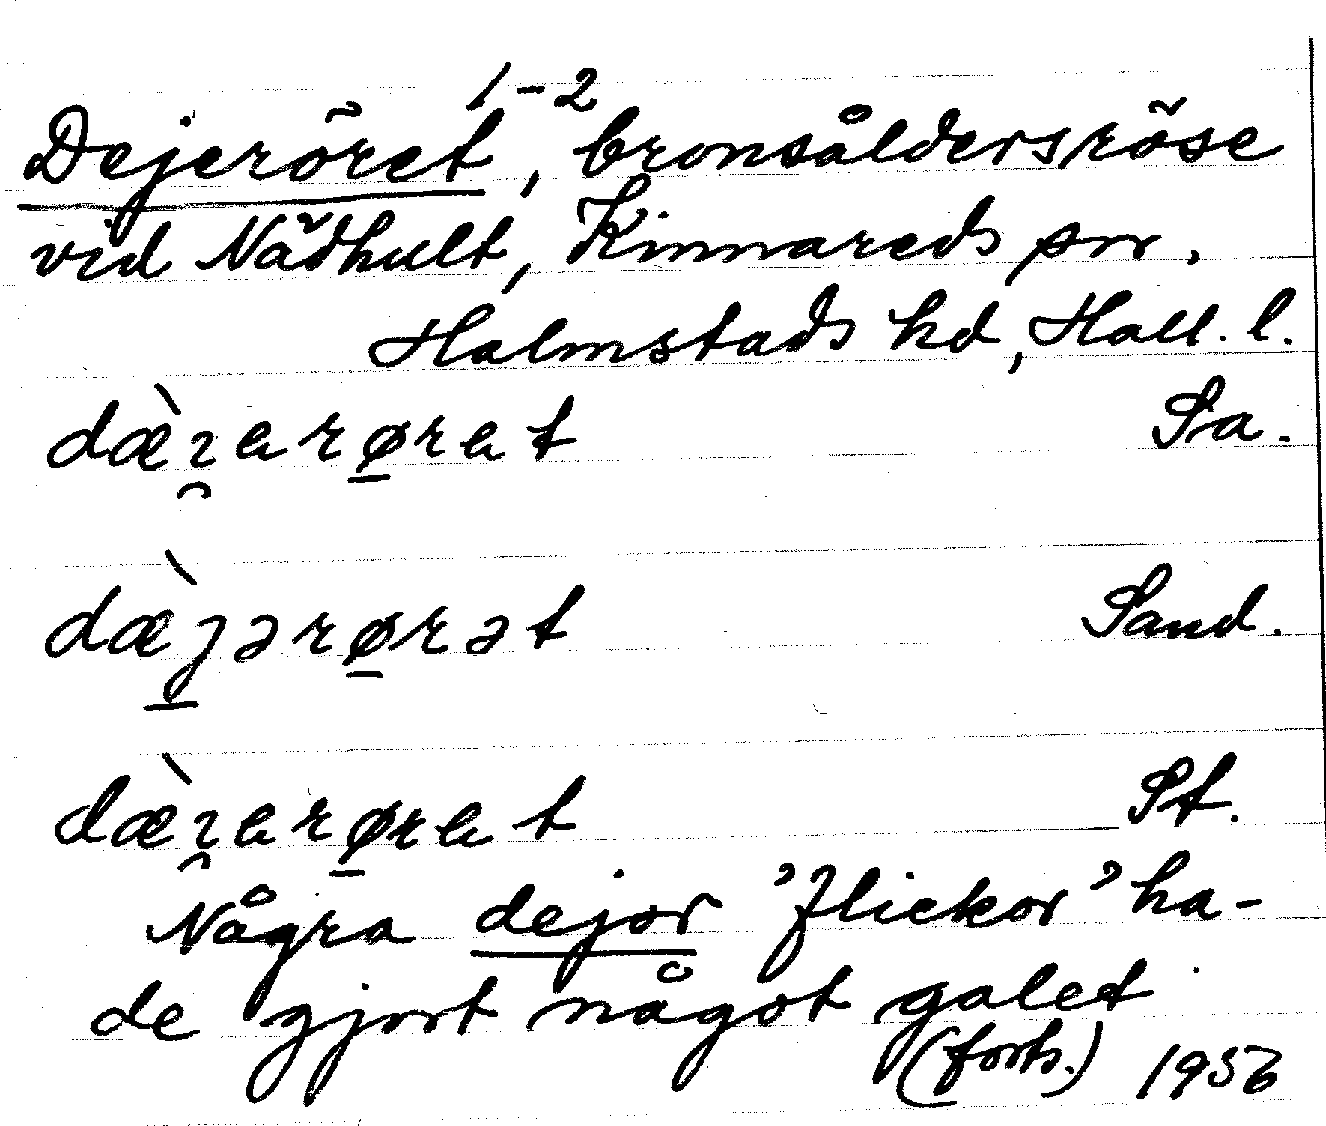 1-2
Dejeröret, bronsåldersröse
vid Nädhult, Kinnareds snr,
Halmstads hd, Hall. l.
dæ̀ı̯ərø̱rət Sa.
dæ̀ȷərø̱rət Sand.
dæ̀ı̯ərø̱rət St.
Några dejor 'flickor' ha-
de gjort något galet
(forts.) 1956